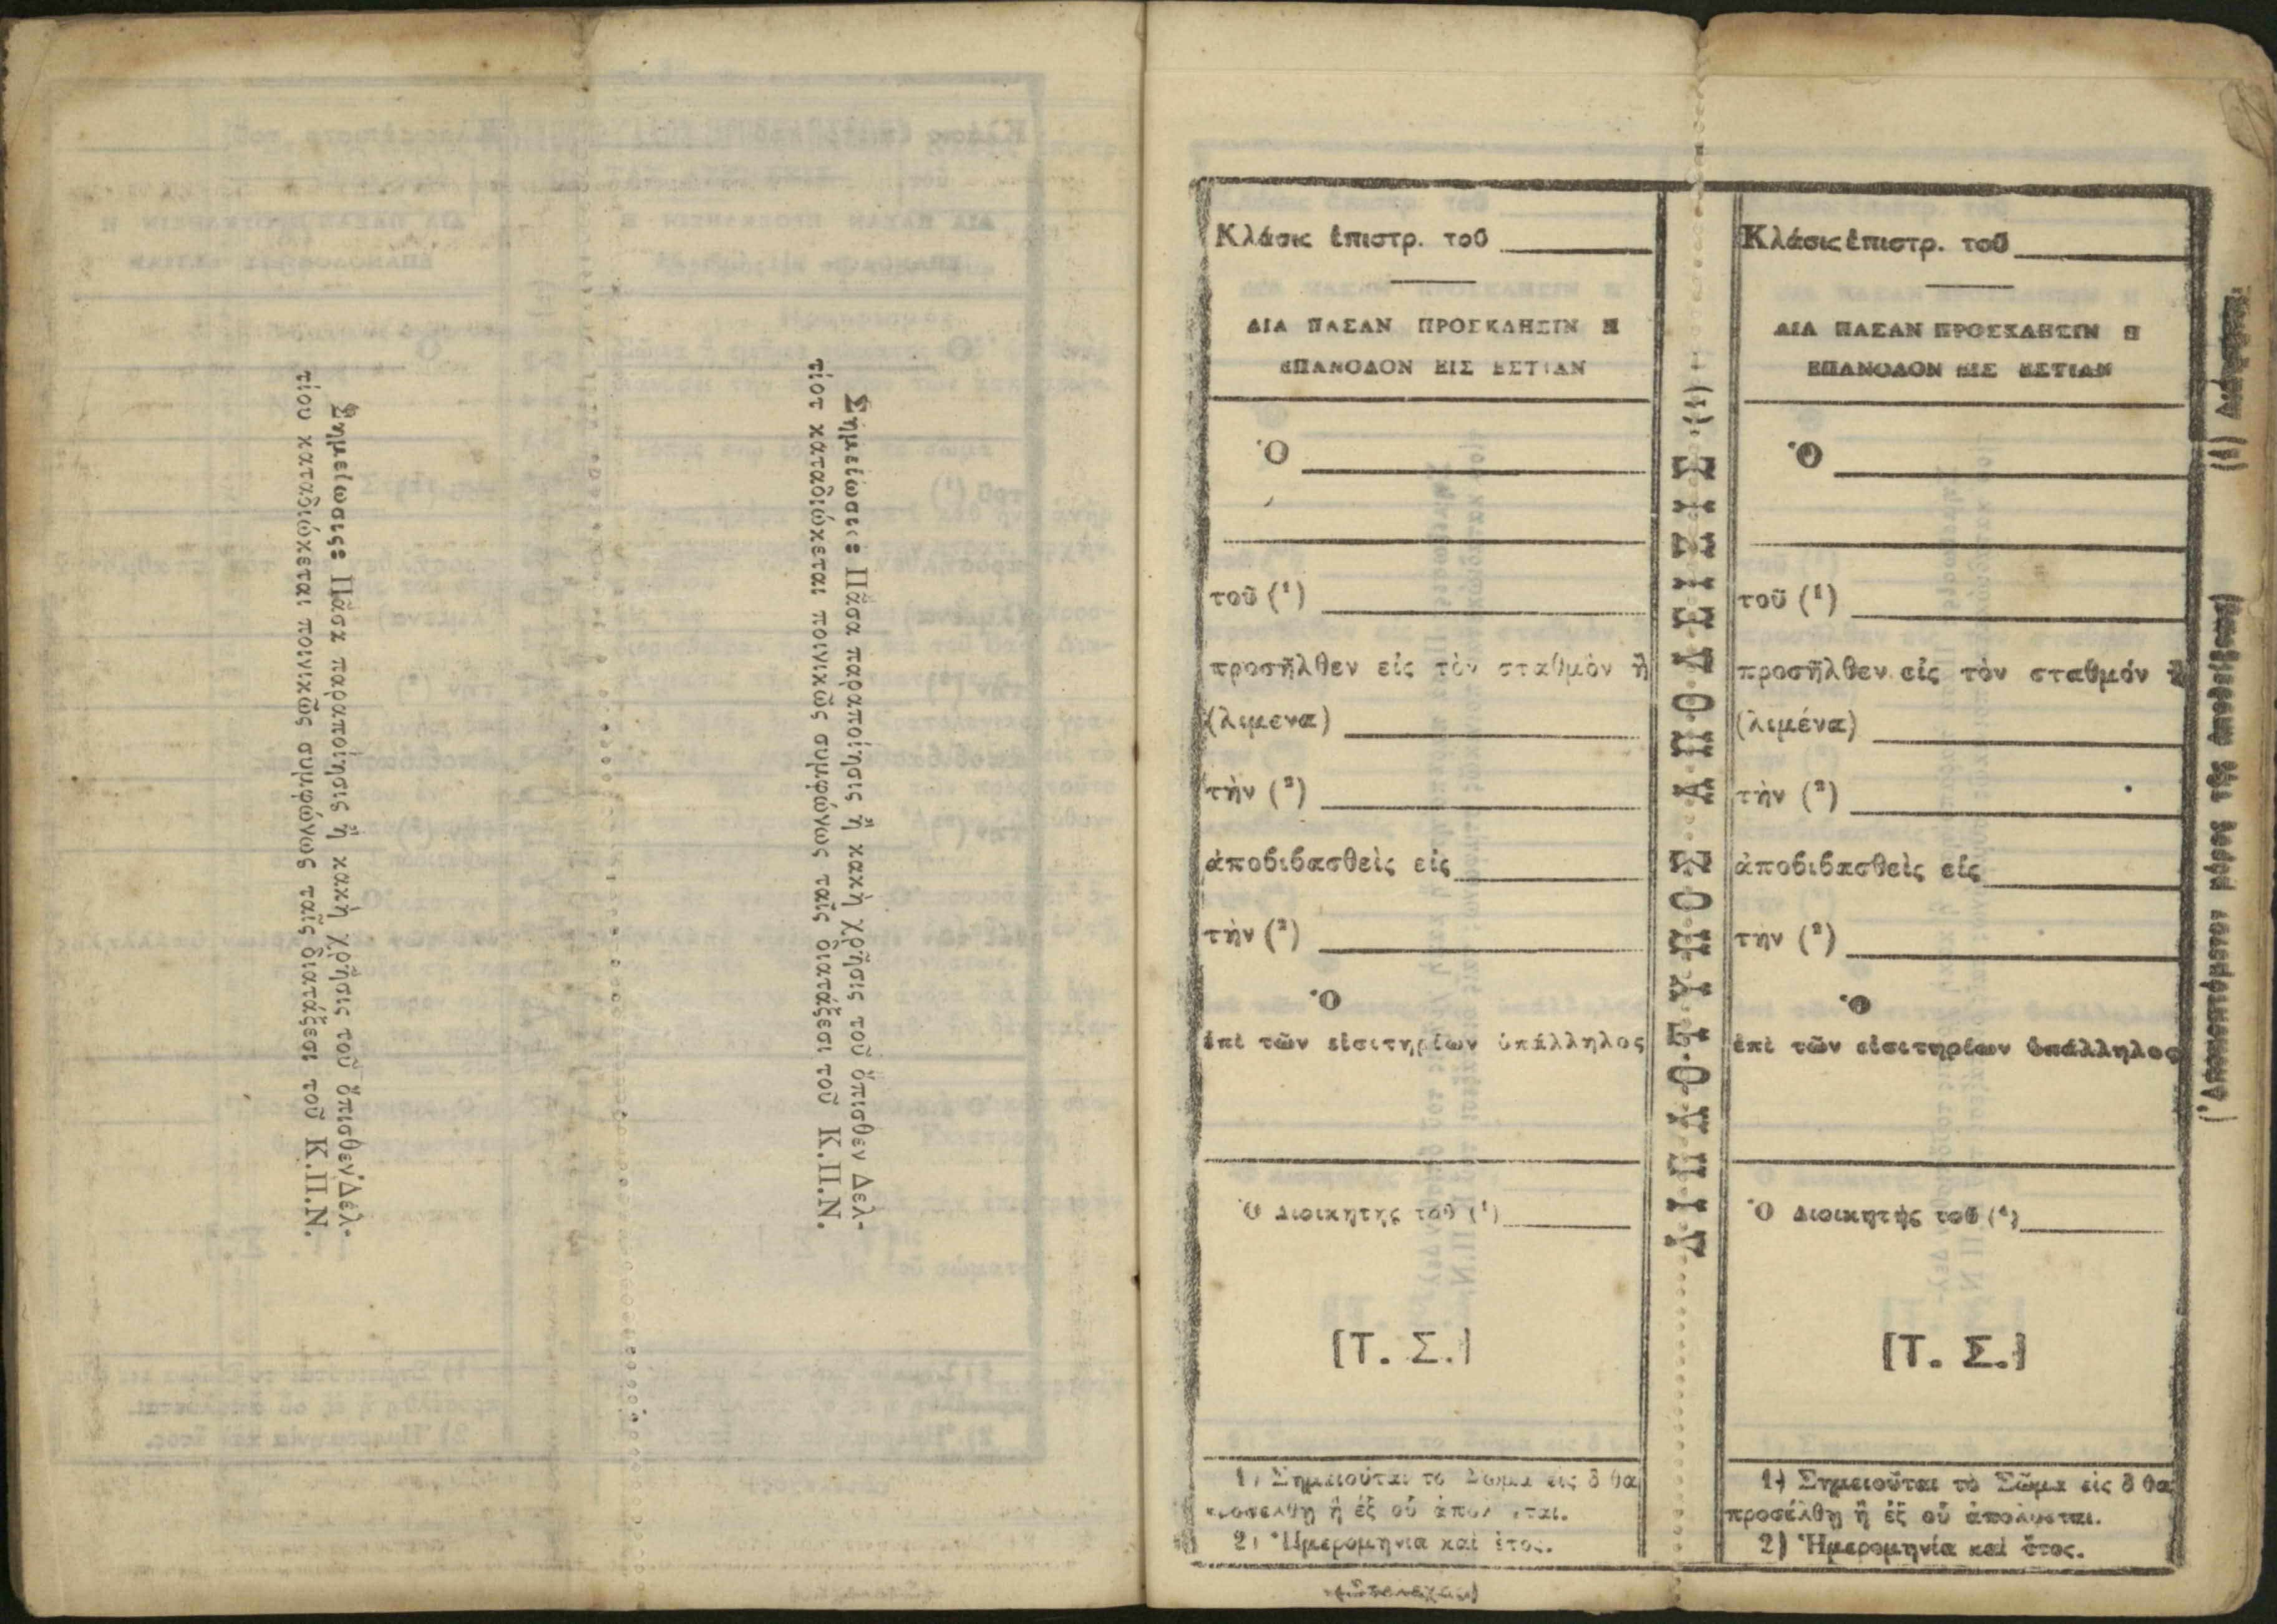 Σημείωσις: Πᾶσα παραποίησις ἢ κακὴ χρῆσις τοῦ ὄπισθεν Δελ-
τίου καταδιώκεται ποινικῶς συμφώνως ταῖς διατάξεσι τοῦ Κ.Π.Ν.
Σημείωσις: Πᾶσα παραποίησις ἢ κακὴ χρῆσις τοῦ ὄπισθεν Δελ-
τίοτ καταδιώκεται ποινικῶς συμφώνως ταῖς διατάξεσι τοῦ Κ.Π.Ν.
Κλάσις ἐπιστρ. τοῦ
ΔΙΑ ΠΑΣΑΝ ΠΡΟΣΚΛΗΣΙΝ Η
ΕΠΑΝΟΔΟΝ ΕΙΣ ΕΣΤΙΑΝ
Ὁ
τοῦ (¹)
προσῆλθεν εἰς τὸν σταθμὸν ἢ
(λιμενα)
τὴν (²)
ἀποβιβασθεὶς εἰς
τὴν (²)
Ὁ
ἐπὶ τῶν εἰσιτηρίων ὑπάλληλος
Ὁ Διοικητὴς τοῦ (¹)
[Τ. Σ.]
1) Σημειοῦται τὸ Σῶμα εἰς ὃ θα
προσέλθῃ ἢ ἐξ οὗ ἀπολύεται.
2) Ἡμερομηνία καὶ ἔτος.
(Στέλεχος)
ΔΙΠΛΟΤΥΠΟΣ ΑΠΟΔΕΙΞΙΣ (1)
Κλάσις ἐπιστρ. τοῦ
ΔΙΑ ΠΑΣΑΝ ΠΡΟΣΚΛΗΣΙΝ Η
ΕΠΑΝΟΔΟΝ ΕΙΣ ΕΣΤΙΑΝ
Ὁ
τοῦ (¹)
προσῆλθεν εἰς τὸν σταθμόν ἢ
(λιμένα)
τὴν (²)
ἀποβιβασθεὶς εἰς
τὴν (²)
Ὁ
ἐπὶ τῶν εἰσιτηρίων ὑπάλληλος
Ὁ Διοικητής τοῦ (¹)
[Τ. Σ.]
1) Σημειοῦται τὸ Σῶμα εἰς ὃ θα
προσέλθῃ ἢ ἐξ οὗ ἀπολύεται.
2) Ἡμερομηνία καὶ ἔτος.
(Ἀποκοπτόμενον μέρος τῆς ἀποδείξεως) (1)